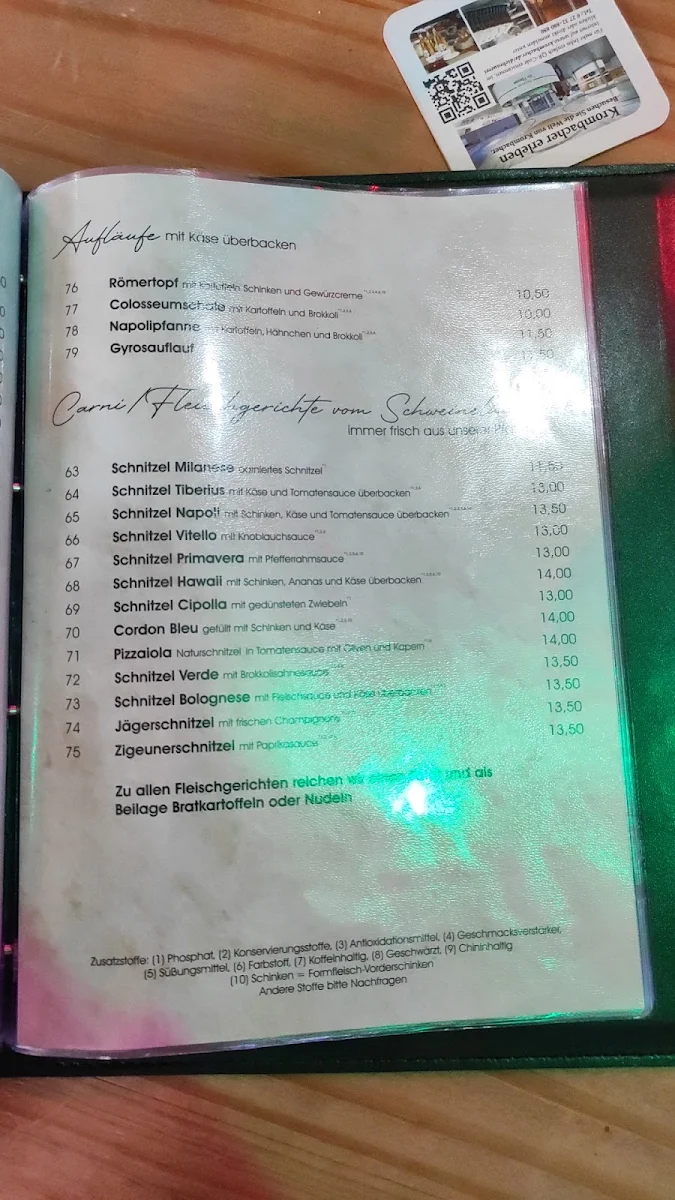 Krombacher erleben
Besuchen Sie die Welt von Krombacher.
Aufläufe mit Käse überbacken
76 Römertopf mit Kartoffeln, Schinken und Gewürzcreme 10,50
77 Colosseumschale mit Kartoffeln und Brokkoli 10,00
78 Napolipfanne mit Kartoffeln, Hähnchen und Brokkoli 11,50
79 Gyrosauflauf 11,50
Carni / Fleischgerichte vom Schwein
immer frisch aus unserer
63 Schnitzel Milanese paniertes Schnitzel 11,50
64 Schnitzel Tiberius mit Käse und Tomatensauce überbacken 13,00
65 Schnitzel Napoli mit Schinken, Käse und Tomatensauce überbacken 13,50
66 Schnitzel Vitello mit Knoblauchsauce 13,00
67 Schnitzel Primavera mit Pfefferrahmsauce 13,00
68 Schnitzel Hawaii mit Schinken, Ananas und Käse überbacken 14,00
69 Schnitzel Cipolla mit gedünsteten Zwiebeln 13,00
70 Cordon Bleu gefüllt mit Schinken und Käse 14,00
71 Pizzaiola Naturschnitzel in Tomatensauce mit Oliven und Kapern 14,00
72 Schnitzel Verde mit Brokkolisahnesauce 13,50
73 Schnitzel Bolognese mit Fleischsauce und Käse überbacken 13,50
74 Jägerschnitzel mit frischen Champignons 13,50
75 Zigeunerschnitzel mit Paprikasauce 13,50
Zu allen Fleischgerichten reichen wir und als
Beilage Bratkartoffeln oder Nudeln
Zusatzstoffe: (1) Phosphat, (2) Konservierungsstoffe, (3) Antioxidationsmittel, (4) Geschmacksverstärker,
(5) Süßungsmittel, (6) Farbstoff, (7) Koffeinhaltig, (8) Geschwärzt, (9) Chininhaltig
(10) Schinken = Formfleisch-Vorderschinken
Andere Stoffe bitte Nachfragen